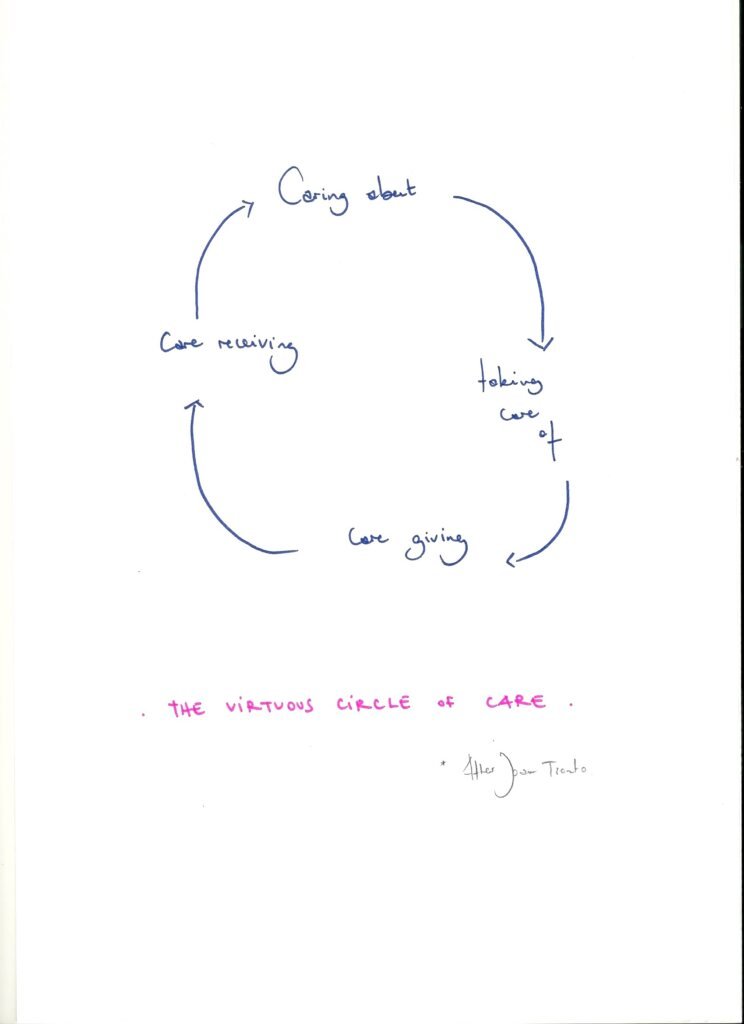 Caring about
Care receiving
taking
care
of
Care giving
. THE VIRTUOUS CIRCLE OF CARE .
* After Joan Tronto